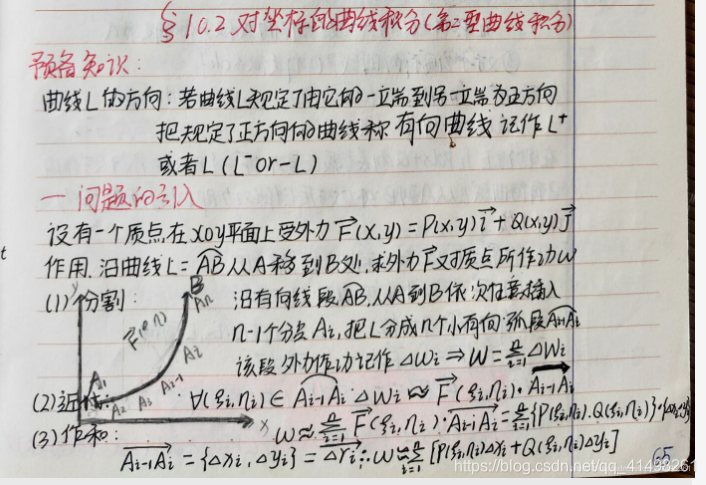 §10.2 对坐标的曲线积分(第二型曲线积分)
预备知识:
曲线L的方向: 若曲线L规定了由它的一端到另一端为正方向
把规定了正方向的曲线称有向曲线 记作L⁺
或者L (L⁻or-L)
一 问题的引入
设有一个质点在xoy平面上受外力F⃗(x,y)=P(x,y)i⃗+Q(x,y)j⃗
作用.沿曲线L=AB从A移到B处.求外力F⃗对质点所作功W
(1)分割: 沿有向线段AB,从A到B依次任意插入
n-1个分点Ai,把L分成n个小有向弧段Ai-1Ai
该段外力作功记作ΔWi⇒W=Σᵢ₌₁ⁿΔWi
y B An Ai Ai-1 A3 A2 A1 x
(2)近似: ∀(ξi,ηi)∈Ai-1Ai ΔWi≈F⃗(ξi,ηi)·Ai-1Ai
(3)作和: W≈Σᵢ₌₁ⁿF⃗(ξi,ηi)·Ai-1Ai=Σᵢ₌₁ⁿ{P(ξi,ηi).Q(ξi,ηi)}·{Δxi,Δyi}
Ai-1Ai={Δxi,Δyi}=Δri∴W≈Σᵢ₌₁ⁿ[P(ξi,ηi)Δxi+Q(ξi,ηi)Δyi]
65
https://blog.csdn.net/qq_41498261
t